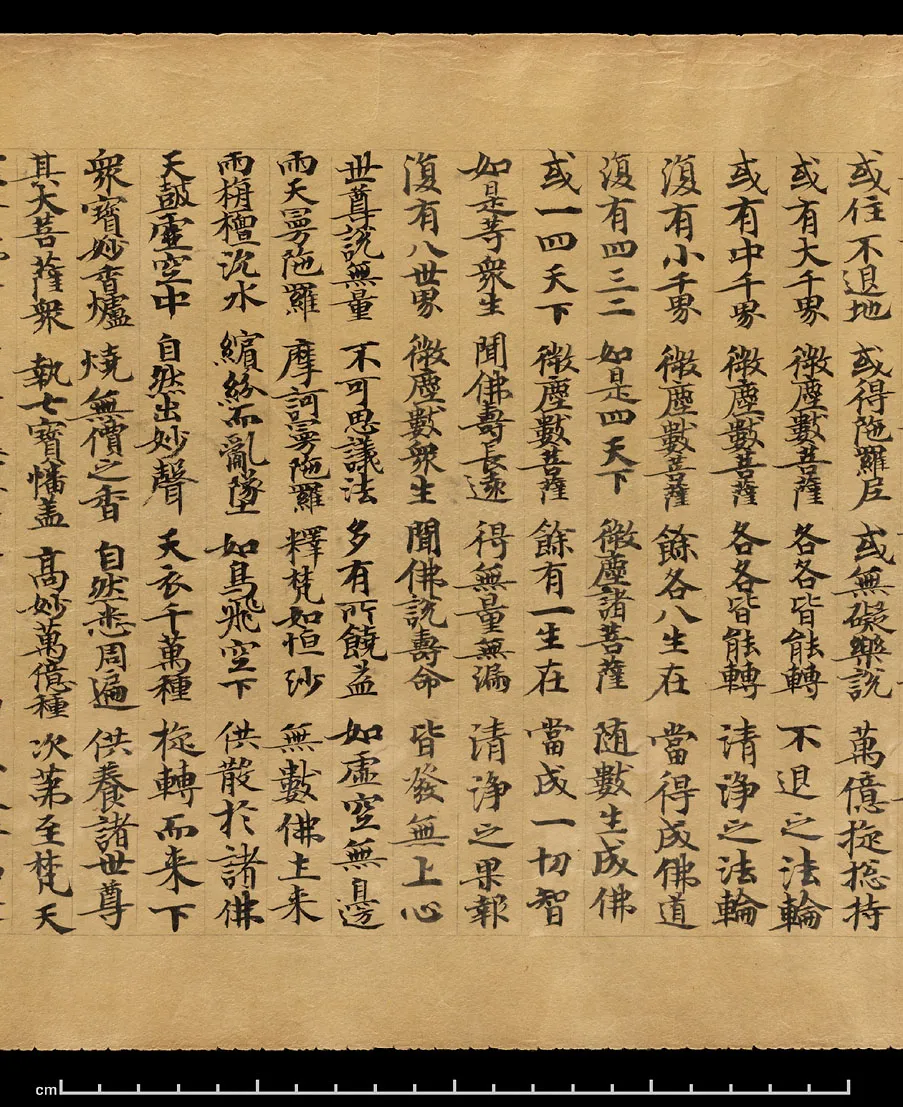 或住不退地 或得陁羅尼 或無礙樂說 萬億㨀捴持
或有大千界 微塵數菩薩 各各皆能轉 不退之法輪
或有中千界 微塵數菩薩 各各皆能轉 清淨之法輪
復有小千界 微塵數菩薩 餘各八生在 當得成佛道
復有四三二 如是四天下 微塵諸菩薩 随數生成佛
或一四天下 微塵數菩薩 餘有一生在 當成一切智
如是等衆生 聞佛壽長遠 得無量無漏 清淨之果報
復有八世界 微塵數衆生 聞佛說壽命 皆發無上心
世尊說無量 不可思議法 多有所饒益 如虛空無邊
雨天曼陁羅 摩訶曼陁羅 釋梵如恒沙 無數佛土来
雨栴檀沉水 繽紛而亂墜 如鳥飛空下 供散於諸佛
天鼓虛空中 自然出妙聲 天衣千萬種 㨀轉而来下
衆寶妙香爐 燒無價之香 自然悉周遍 供養諸世尊
其大菩薩衆 執七寶幡盖 高妙萬億種 次第至梵天